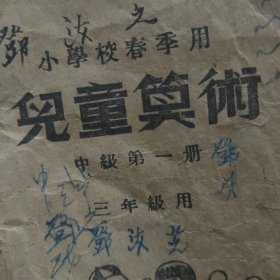 鄧汝之
小學校春季用
兒童算術
中級第一册
三年級用
鄧汝芝